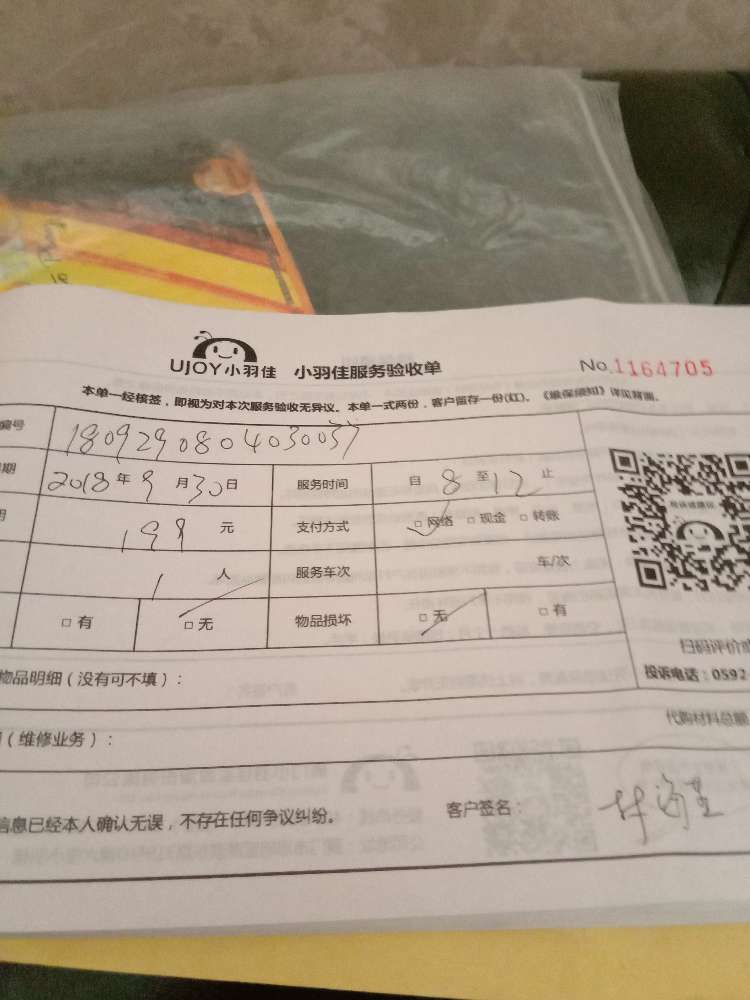 UJOY小羽佳 小羽佳服务验收单 No.1164705
本单一经核签，即视为对本次服务验收无异议。本单一式两份，客户留存一份(红)。《维保须知》详见背面。
编号 180929080403003
期 2018年9月30日 服务时间 自8至12止
199元 支付方式 □网络 □现金 □转账
1人 服务车次 车/次
□有 □无 物品损坏 □无 □有
扫码评价或
物品明细（没有可不填）：
投诉电话：0592-
代购材料总额
（维修业务）：
信息已经本人确认无误，不存在任何争议纠纷。 客户签名：